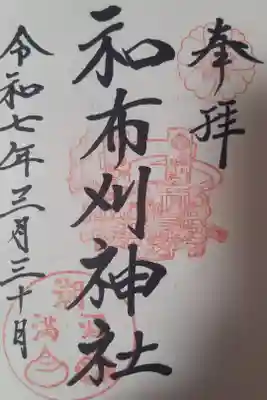 奉拝
和布刈神社
令和七年三月三十日